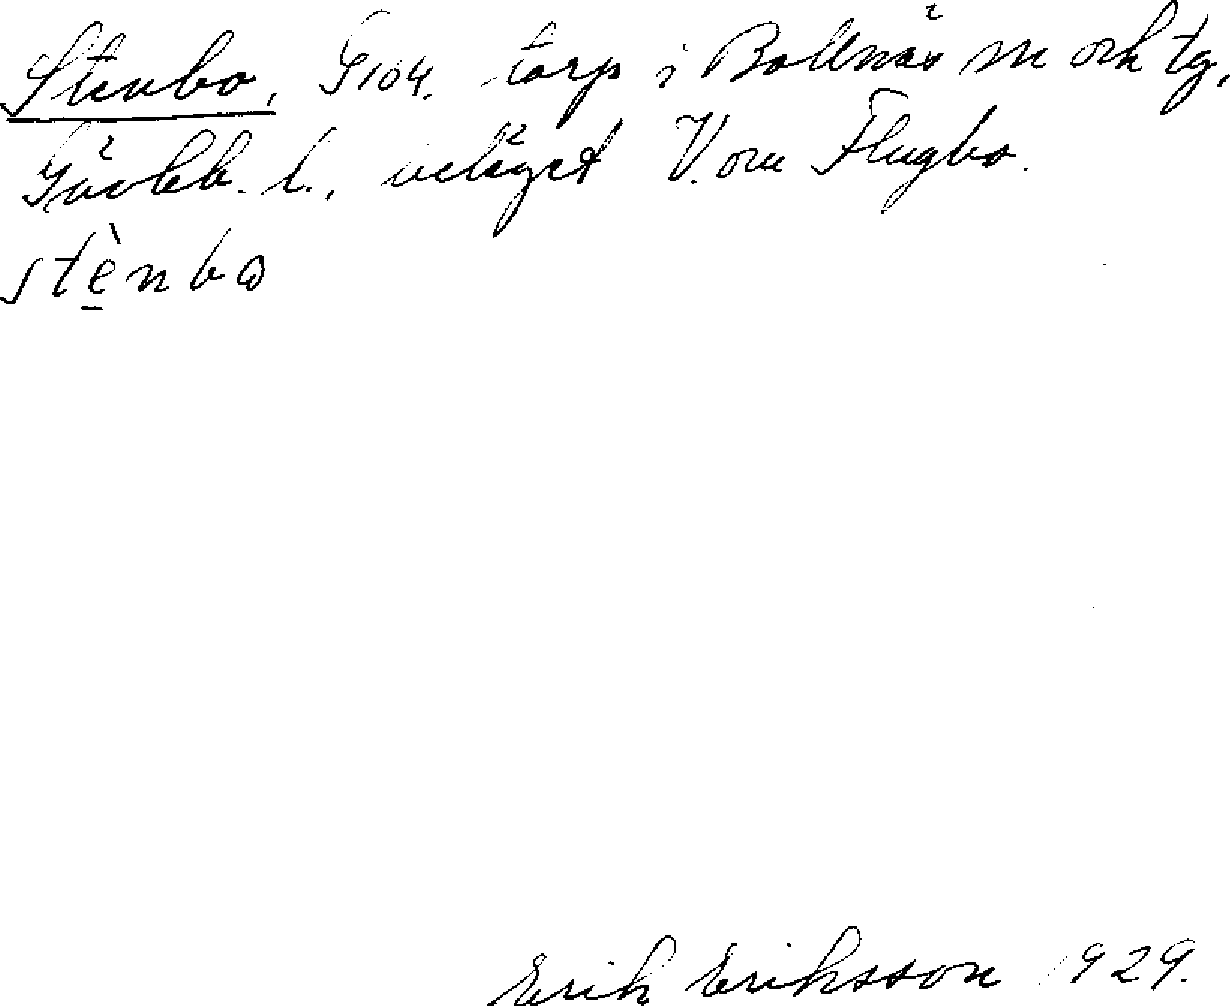 Stenbo, G104. torp i Bollnäs sn och tg,
Gävleb. l., beläget V. om Flugbo.
stènbω
Erik Eriksson 1929.